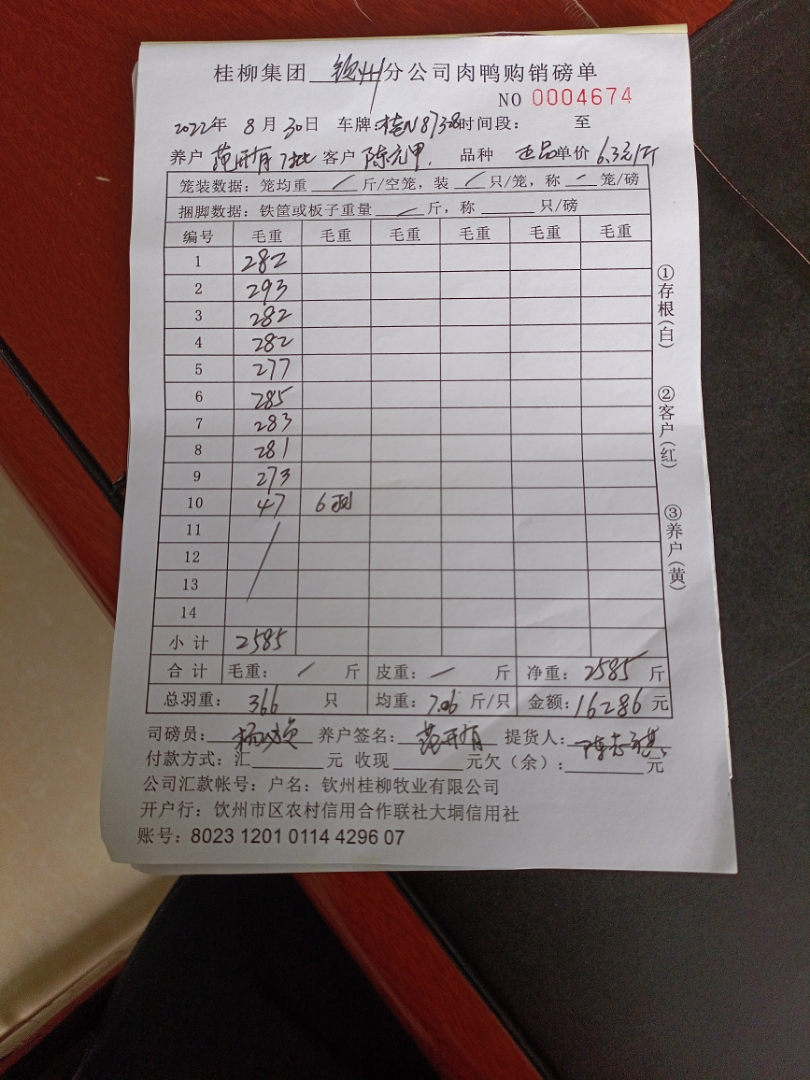 桂柳集团 钦州 分公司肉鸭购销磅单
NO 0004674
2022年 8月 30日 车牌:桂N87328 时间段: 至
养户 范开有 7批 客户 陈元甲. 品种 正品 单价 6.3元/斤
笼装数据:笼均重 / 斤/空笼,装 / 只/笼,称 / 笼/磅
捆脚数据:铁筐或板子重量 / 斤,称 只/磅
编号 毛重 毛重 毛重 毛重 毛重 毛重
1 282
2 293
3 282
4 282
5 277
6 285
7 283
8 281
9 273
10 47 6羽
11
12
13
14
小计 2585
合计 毛重: / 斤 皮重: / 斤 净重: 2585 斤
总羽重: 366 只 均重: 7.06 斤/只 金额: 16286 元
司磅员: 养户签名: 范开有 提货人:
付款方式:汇 元 收现 元欠(余): 元
公司汇款帐号:户名:钦州桂柳牧业有限公司
开户行:钦州市区农村信用合作联社大垌信用社
账号:8023 1201 0114 4296 07
①存根(白)
②客户(红)
③养户(黄)